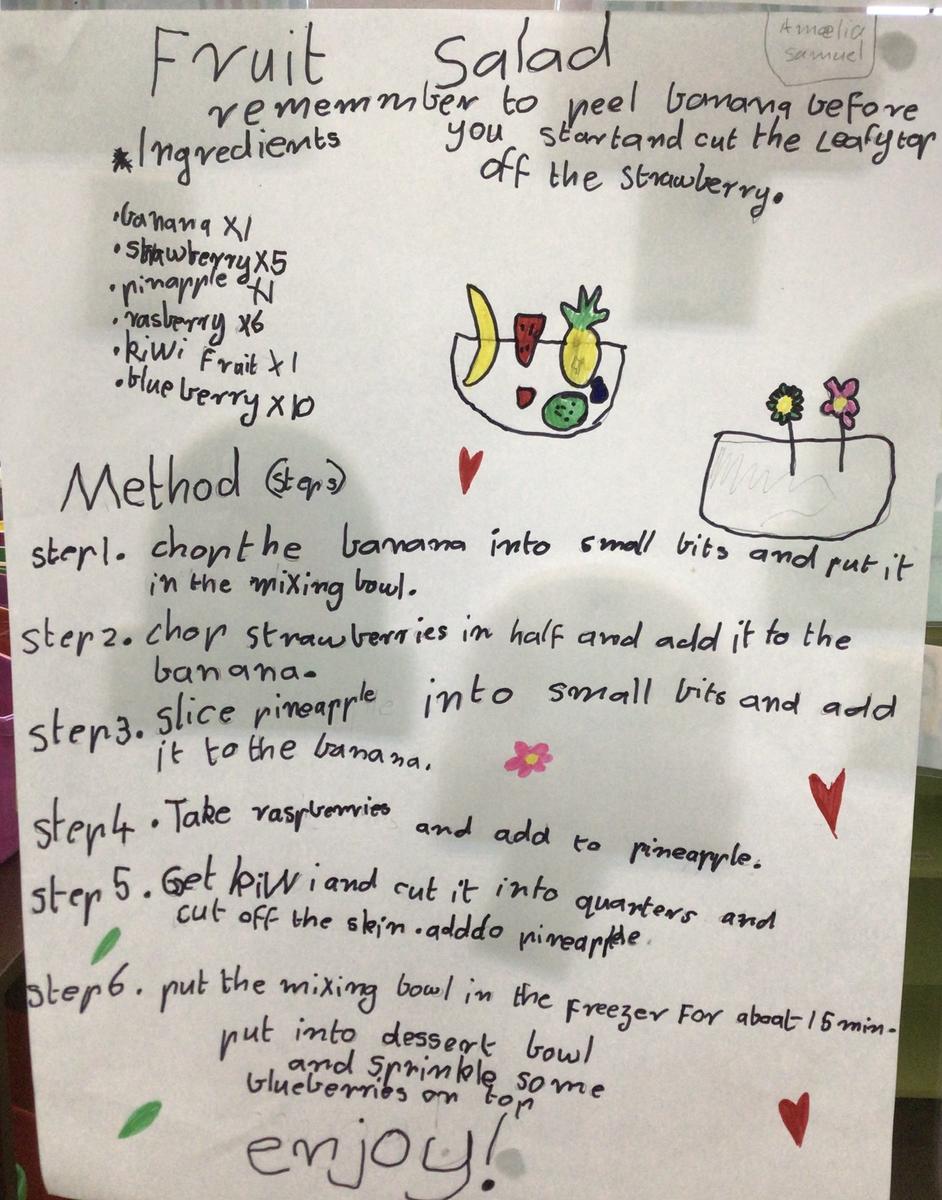 Fruit Salad
Amælia
samuel
rememmber to peel banana before
you startand cut the Leafy top
off the strawberry.
*Ingredients
•banana x1
•strawberry x5
•pinapple x1
•rasberry x6
•kiwi fruit x1
•blue berry x10
Method (steps)
step1. chop the banana into small bits and put it
in the mixing bowl.
step2. chop strawberries in half and add it to the
banana.
step3. slice pineapple into small bits and add
it to the banana.
step4. Take raspberries and add to pineapple.
step5. Get kiwi and cut it into quarters and
cut off the skin. adddo pineapple.
step6. put the mixing bowl in the freezer For about 15min.
put into dessert bowl
and sprinkle some
blueberries on top
enjoy!